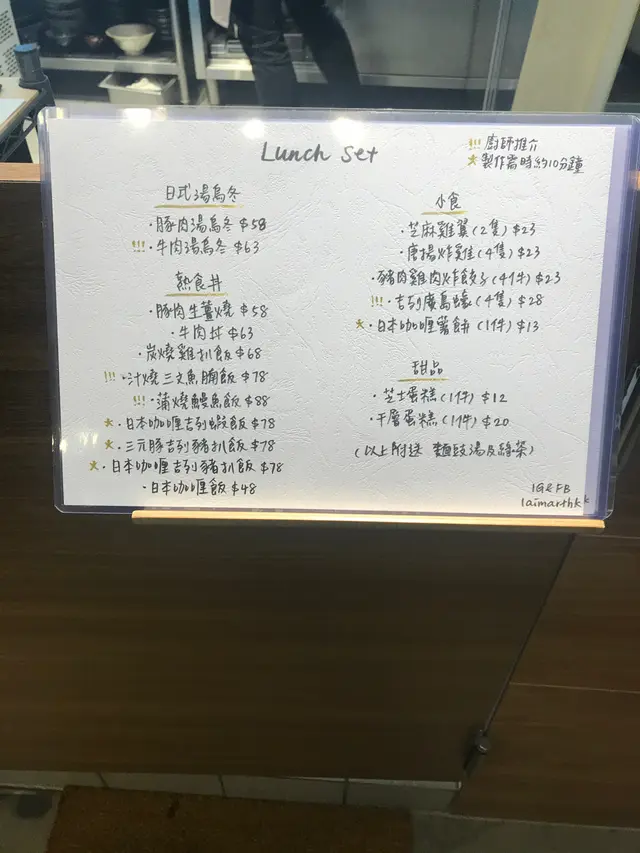 Lunch Set
!!! 廚師推介
★ 製作需時約10分鐘
日式湯烏冬
· 豚肉湯烏冬 $58
!!! · 牛肉湯烏冬 $63
熱食丼
· 豚肉生薑燒 $58
· 牛肉丼 $63
· 炭燒雞扒飯 $68
!!! · 汁燒三文魚腩飯 $78
!!! · 蒲燒鰻魚飯 $88
★ · 日本咖喱吉列蝦飯 $78
★ · 三元豚吉列豬扒飯 $78
★ · 日本咖喱吉列豬扒飯 $78
· 日本咖喱飯 $48
小食
· 芝麻雞翼 (2隻) $23
· 唐揚炸雞 (4隻) $23
· 豬肉雞肉炸餃子 (4件) $23
!!! · 吉列廣島蠔 (4隻) $28
★ · 日本咖喱薯餅 (1件) $13
甜品
· 芝士蛋糕 (1件) $12
· 千層蛋糕 (1件) $20
(以上附送 麵豉湯及綠茶)
IG & FB
laimarthk